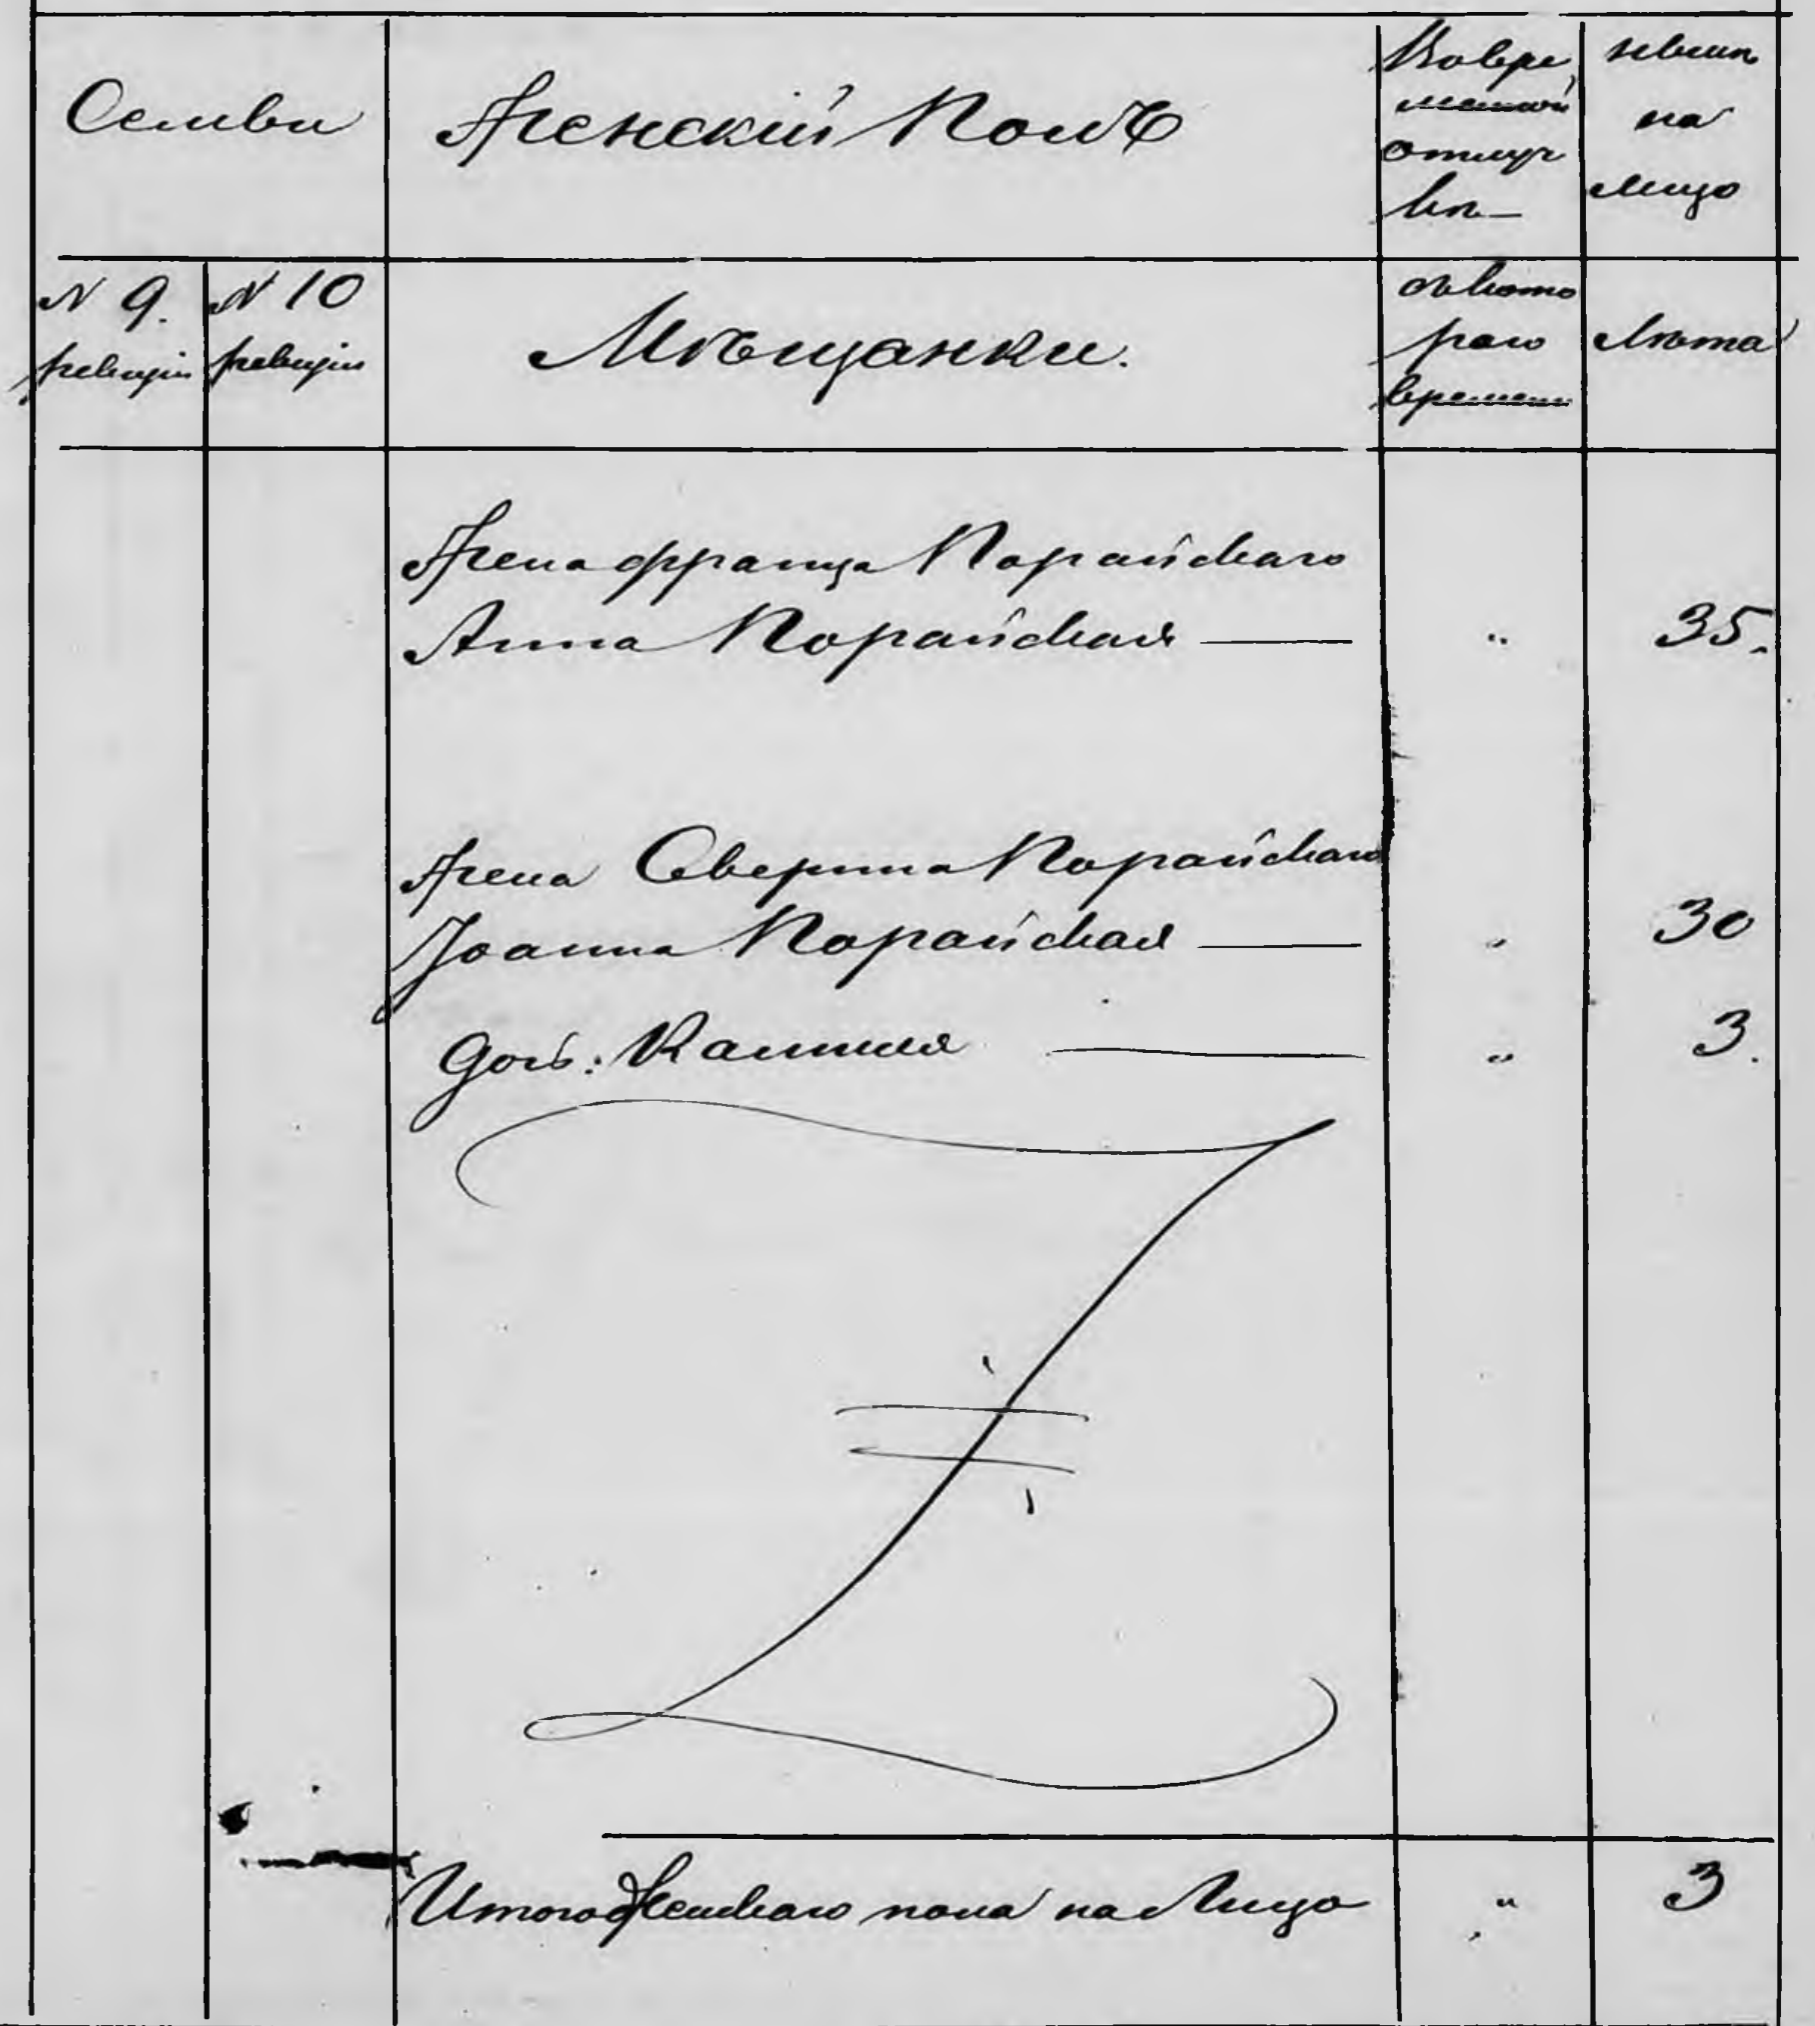 Семьи
Женскій Полъ
Во вре
менной
отлуч
кѣ
нынѣ
на
лицо
N 9.
ревизіи
N 10
ревизіи
Мѣщанки.
съ кото
раго
времени
Лѣта
Жена Франца Порайскаго
Анна Порайская — " 35.
Жена Сверина Порайскаго
Іоанна Порайская — " 30
дочь: Камиля — " 3.
Итого Женскаго пола на Лицо " 3